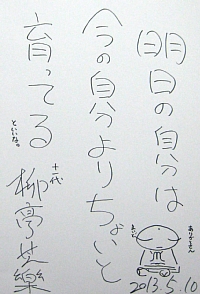 明日の自分は
今の自分よりちょいと
育ってる
といいな。
十一代
柳亭芝樂
ありがとさん
2013.5.10